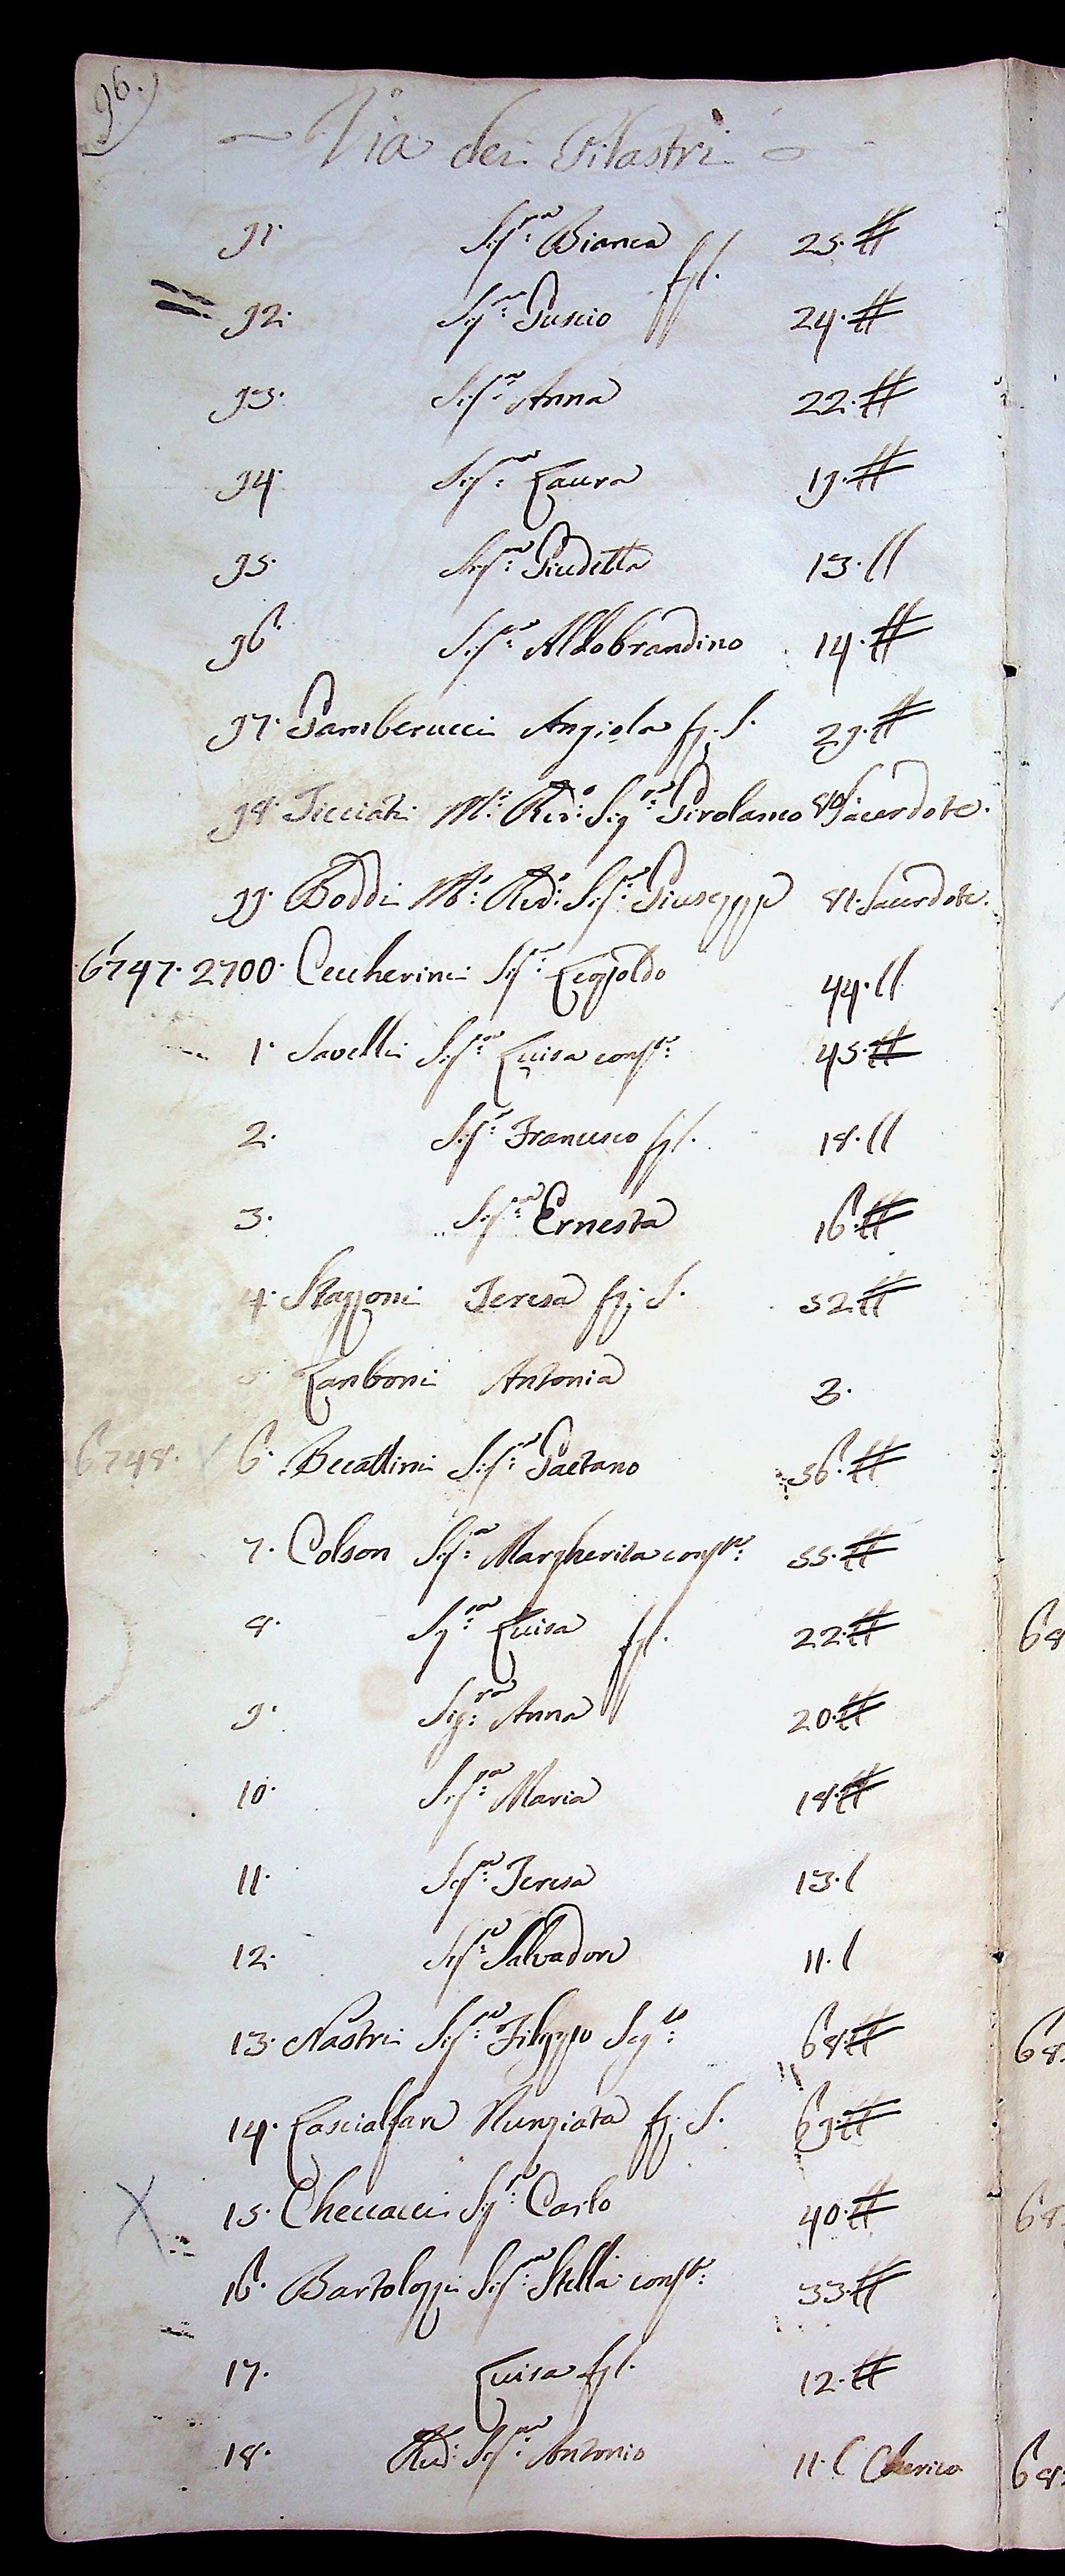 96.
Via dei Pilastri
91. Sig.ra Bianca 25.
figl.
92. Sig.r Guscio 24.
93. Sig.ra Anna 22.
94. Sig.ra Laura 19.
95. Sig.ra Giuditta 13.
96. Sig.r Aldobrandino 14.
97. Gamberucci Angiola f. S. 29.
98. Ticciati M.o Rev.o Sig.r Girolamo 80 Sacerdote.
99. Boddi M.o Rev.o Sig.r Giuseppe 81. Sacerdote.
6747. 2700. Ceccherini Sig.r Leopoldo 44.
1. Savelli Sig.ra Luisa cons.te 45.
2. Sig.r Francesco figl. 18.
3. Sig.ra Ernesta 16.
4. Stazzoni Teresa f. S. 52.
5. Lanboni Antonia 3.
6748. 6. Becattini Sig.r Gaetano 56.
7. Colson Sig.a Margherita cons.te 55.
8. Sig.ra Luisa figl. 22.
9. Sig.ra Anna 20.
10. Sig.ra Maria 18.
11. Sig.ra Teresa 13.
12. Sig.r Salvadore 11.
13. Nastri Sig.r Filippo Seg.to 68.
14. Cascialfare Nunziata f. S. 69.
15. Checcacci Sig.r Carlo 40.
16. Bartolozzi Sig.ra Stella cons.te 33.
17. Luisa figl. 12.
18. Rev. Sig.r Antonio 11. Cherico